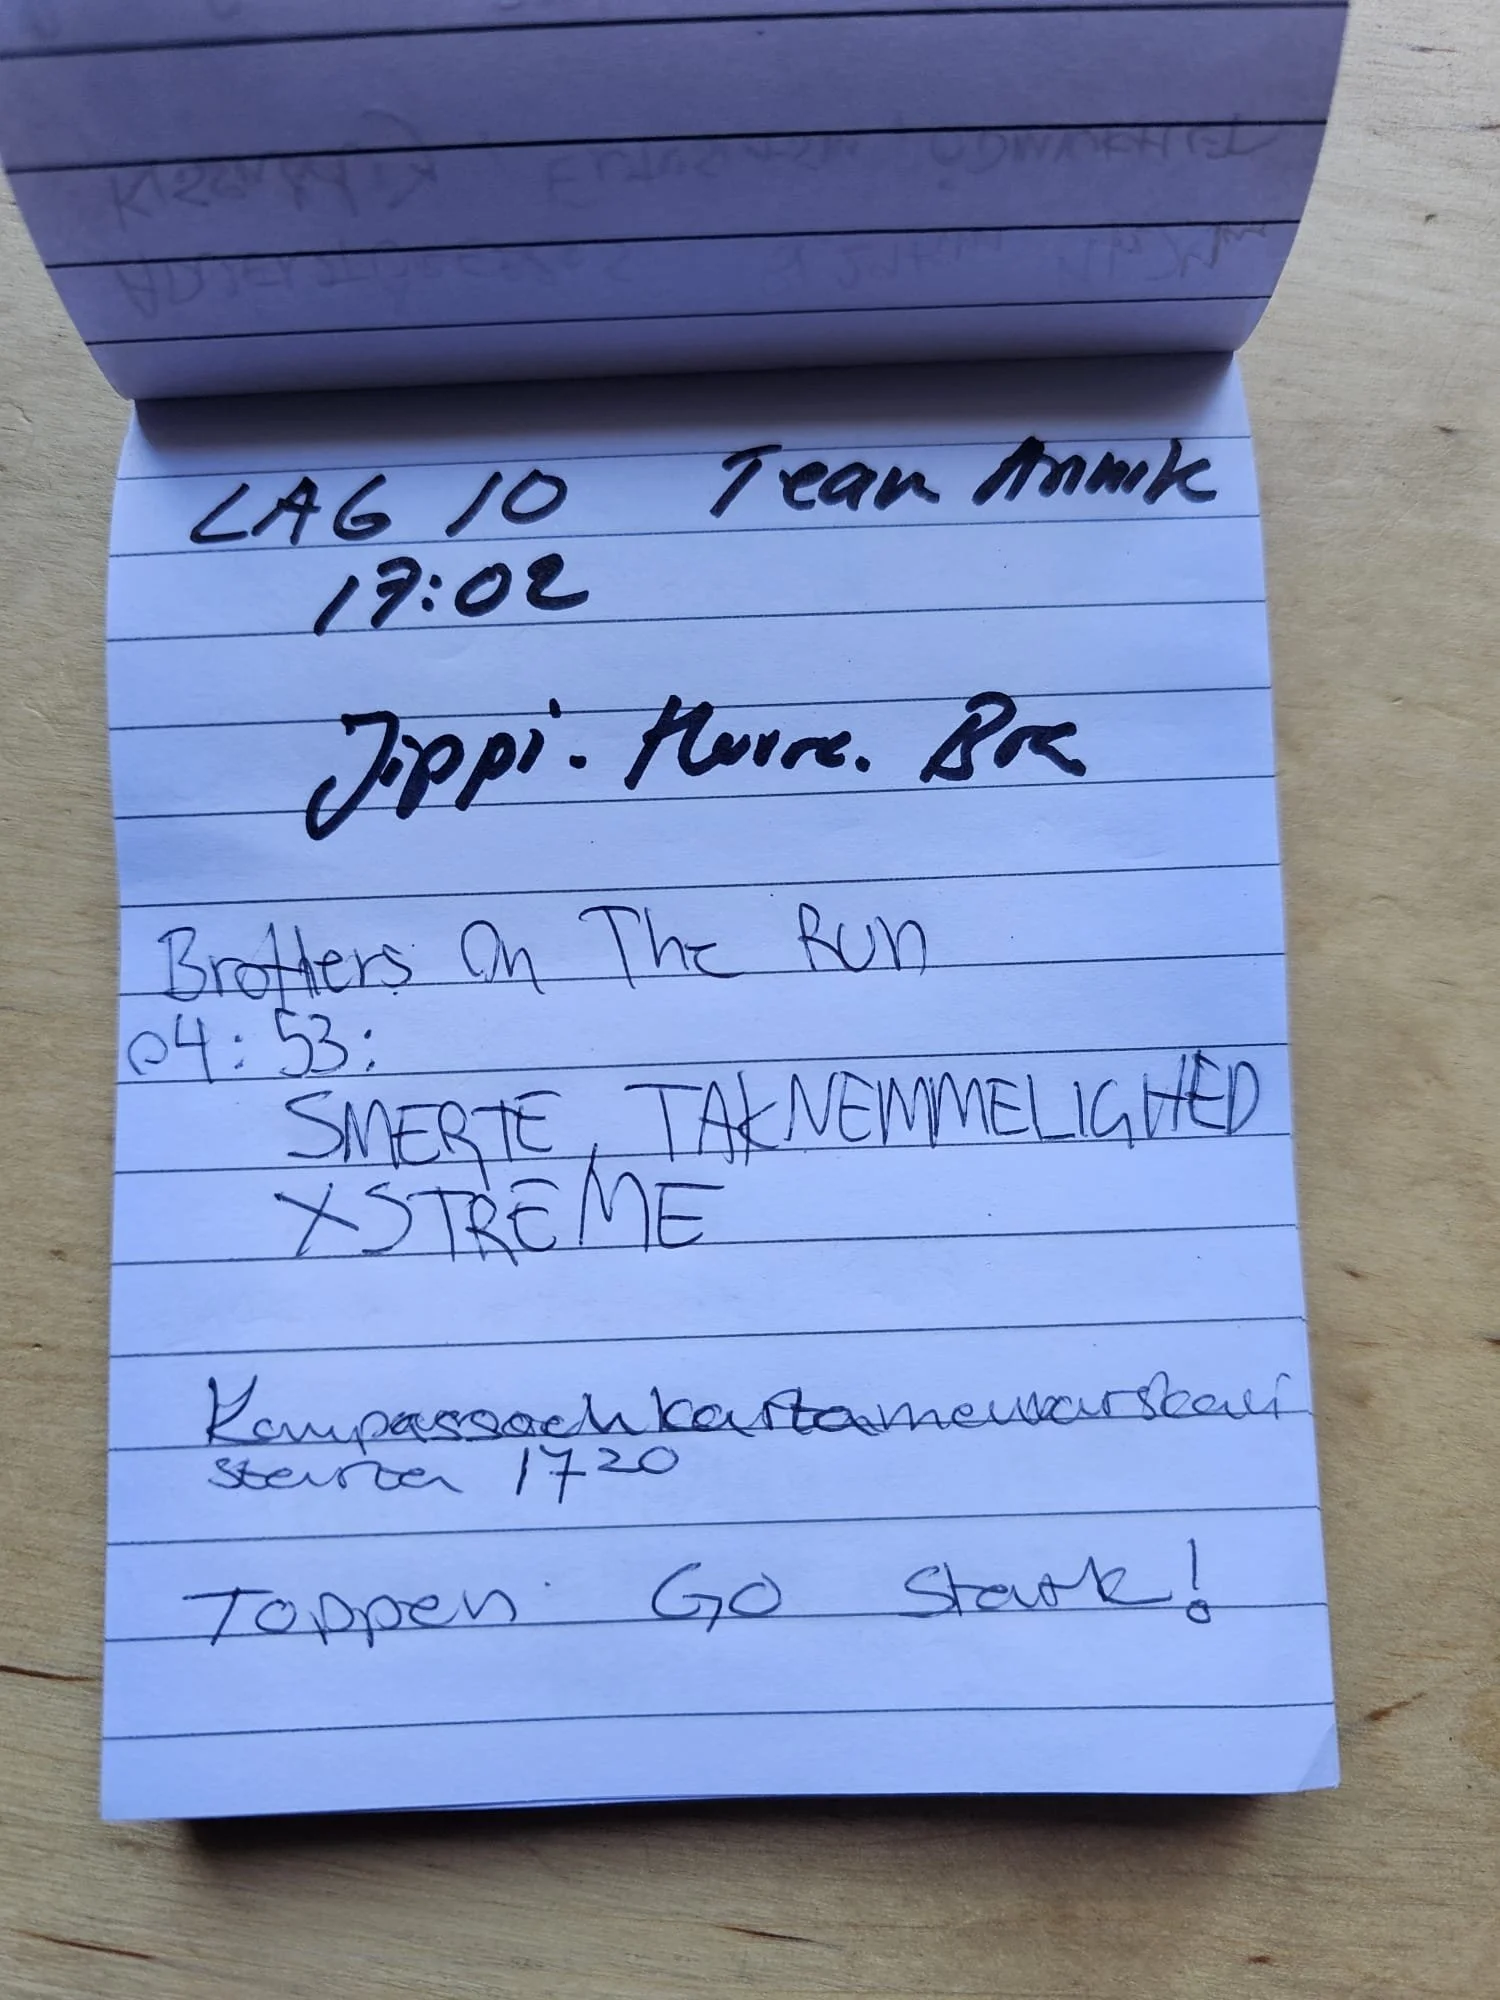 LAG 10 Team Annik
17:02
Jippi. Hurre. Bra
Brothers On The Run
04:53:
SMERTE, TAKNEMMELIGHED
XSTREME
Kompassochkartamenvarskavi
starta 1720
Toppen GO Stark!